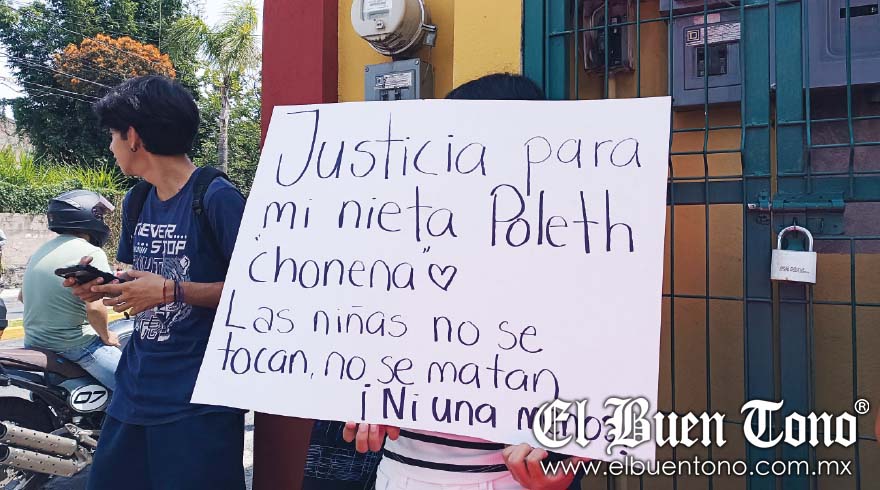 Justicia para
mi nieta Poleth
"chonena" ♡
Las niñas no se
tocan, no se matan
¡Ni una
El Buen Tono®
www.elbuentono.com.mx
NEVER....
STOP
07